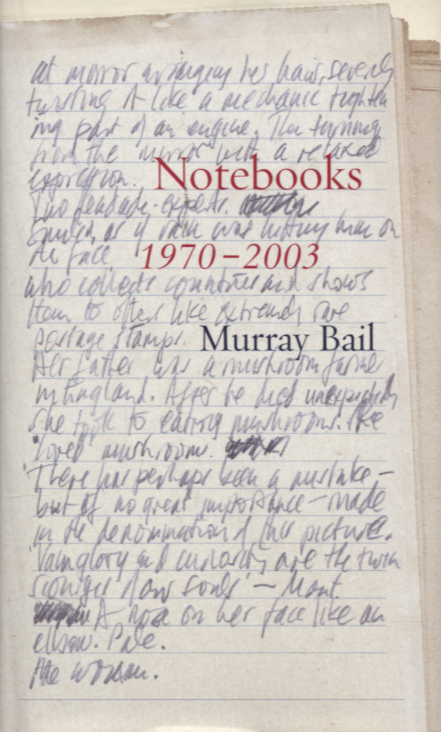 at mirror arranging her hair, severely
twisting it like a mechanic tighten
ing part of an engine. Then turning
from the mirror with a relaxed
expression.
Notebooks
Two headache-experts.
as if rain was hitting him on
the face.
1970–2003
who collects countries and shows
them to others like extremely rare
postage stamps.
Murray Bail
Her father was a mushroom farmer
in England. After he died unexpectedly
she took to eating mushrooms. She
'loved' mushrooms.
'There has perhaps been a mistake –
but of no great importance – made
in the denomination of this picture.
'Vainglory and curiosity are the twin
scourges of our souls' – Mont.
A nose on her face like an
elbow. Pale.
the woman.